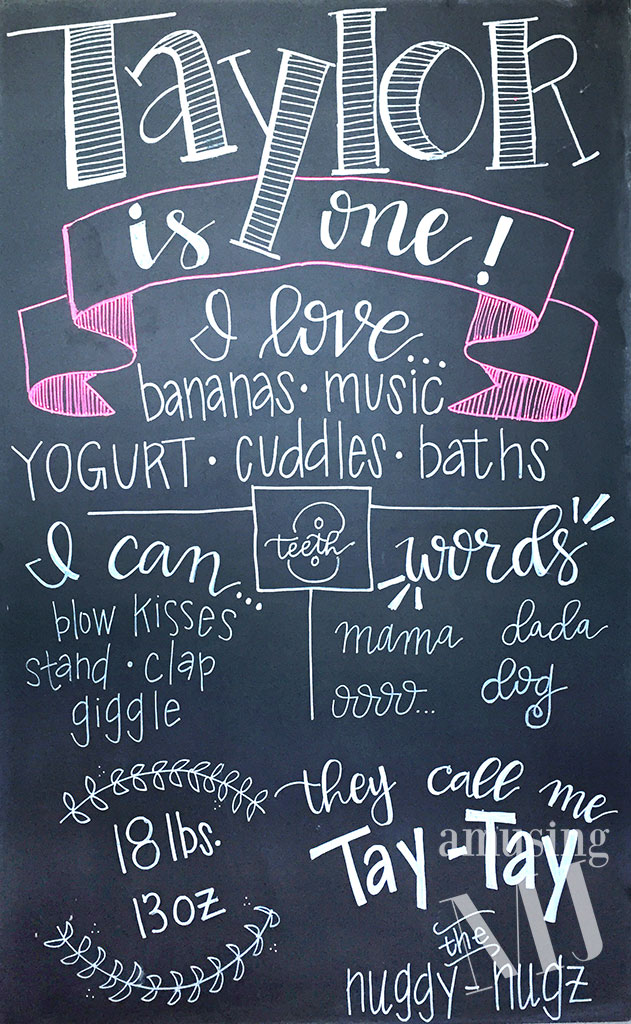 Taylor
is one!
I love...
bananas · music
YOGURT · cuddles · baths
8 teeth
I can...
blow kisses
stand · clap
giggle
words
mama dada
oooo... dog
18 lbs.
13 oz
they call me
Tay-Tay
the
nuggy-nugz
amusing
MJ